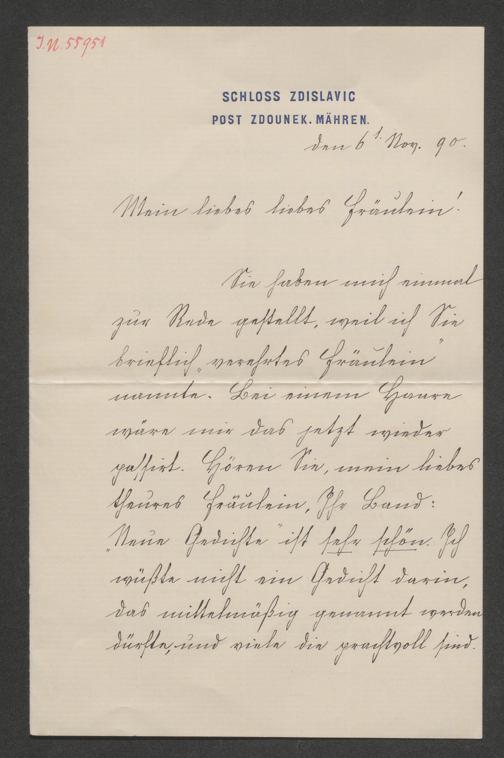 J.N. 55951
SCHLOSS ZDISLAVIC
POST ZDOUNEK. MÄHREN.
den 6t. Nov. 90.
Mein liebes liebes Fräulein!
Sie haben mich einmal
zur Rede gestellt, weil ich Sie
brieflich „verehrtes Fräulein"
nannte. Bei einem Haare
wäre mir das jetzt wieder
passirt. Hören Sie, mein liebes
theures Fräulein, Ihr Band:
„Neue Gedichte" ist sehr schön. Ich
wüßte nicht ein Gedicht darin,
das mittelmäßig genannt werden
dürfte, und viele die prachtvoll sind.